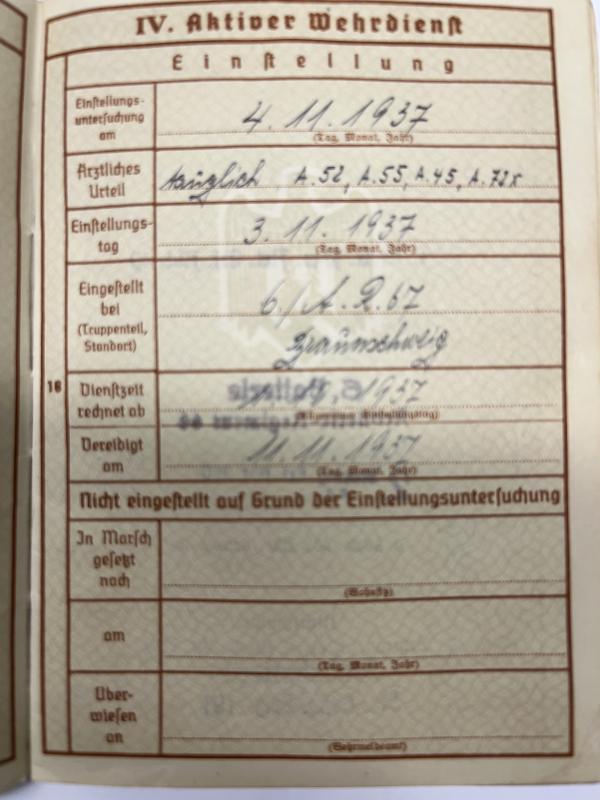 IV. Aktiver Wehrdienst
Einstellung
Einstellungs-
untersuchung
am
4. 11. 1937
(Tag, Monat, Jahr)
Ärztliches
Urteil
tauglich, A.52, A.55, A.45, A.72x
Einstellungs-
tag
3. 11. 1937
(Tag, Monat, Jahr)
Eingestellt
bei
(Truppenteil,
Standort)
6./A.R.67
Braunschweig
18
Dienstzeit
rechnet ab
1937
Vereidigt
am
11. 11. 1937
(Tag, Monat, Jahr)
Nicht eingestellt auf Grund der Einstellungsuntersuchung
In Marsch
gesetzt
nach
(Wohnsitz)
am
(Tag, Monat, Jahr)
Über-
wiesen
an
(Wehrmeldeamt)